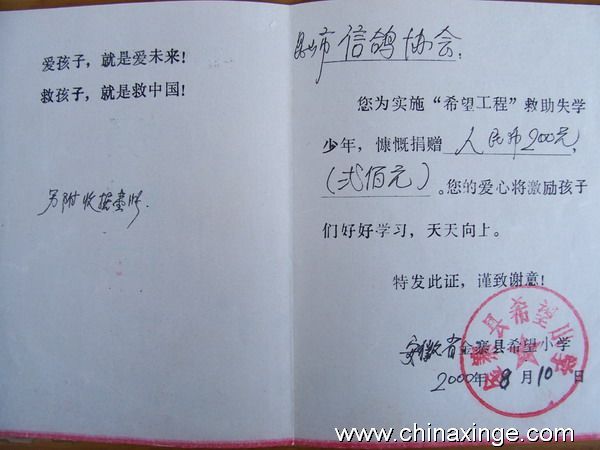 爱孩子，就是爱未来！
救孩子，就是救中国！
另附收据壹张.
昆山市信鸽协会：
您为实施“希望工程”救助失学
少年，慷慨捐赠 人民币200元，
（弍佰元）。您的爱心将激励孩子
们好好学习，天天向上。
特发此证，谨致谢意！
安徽省金寨县希望小学
2000年8月10日
金寨县希望小学
www.chinaxinge.com